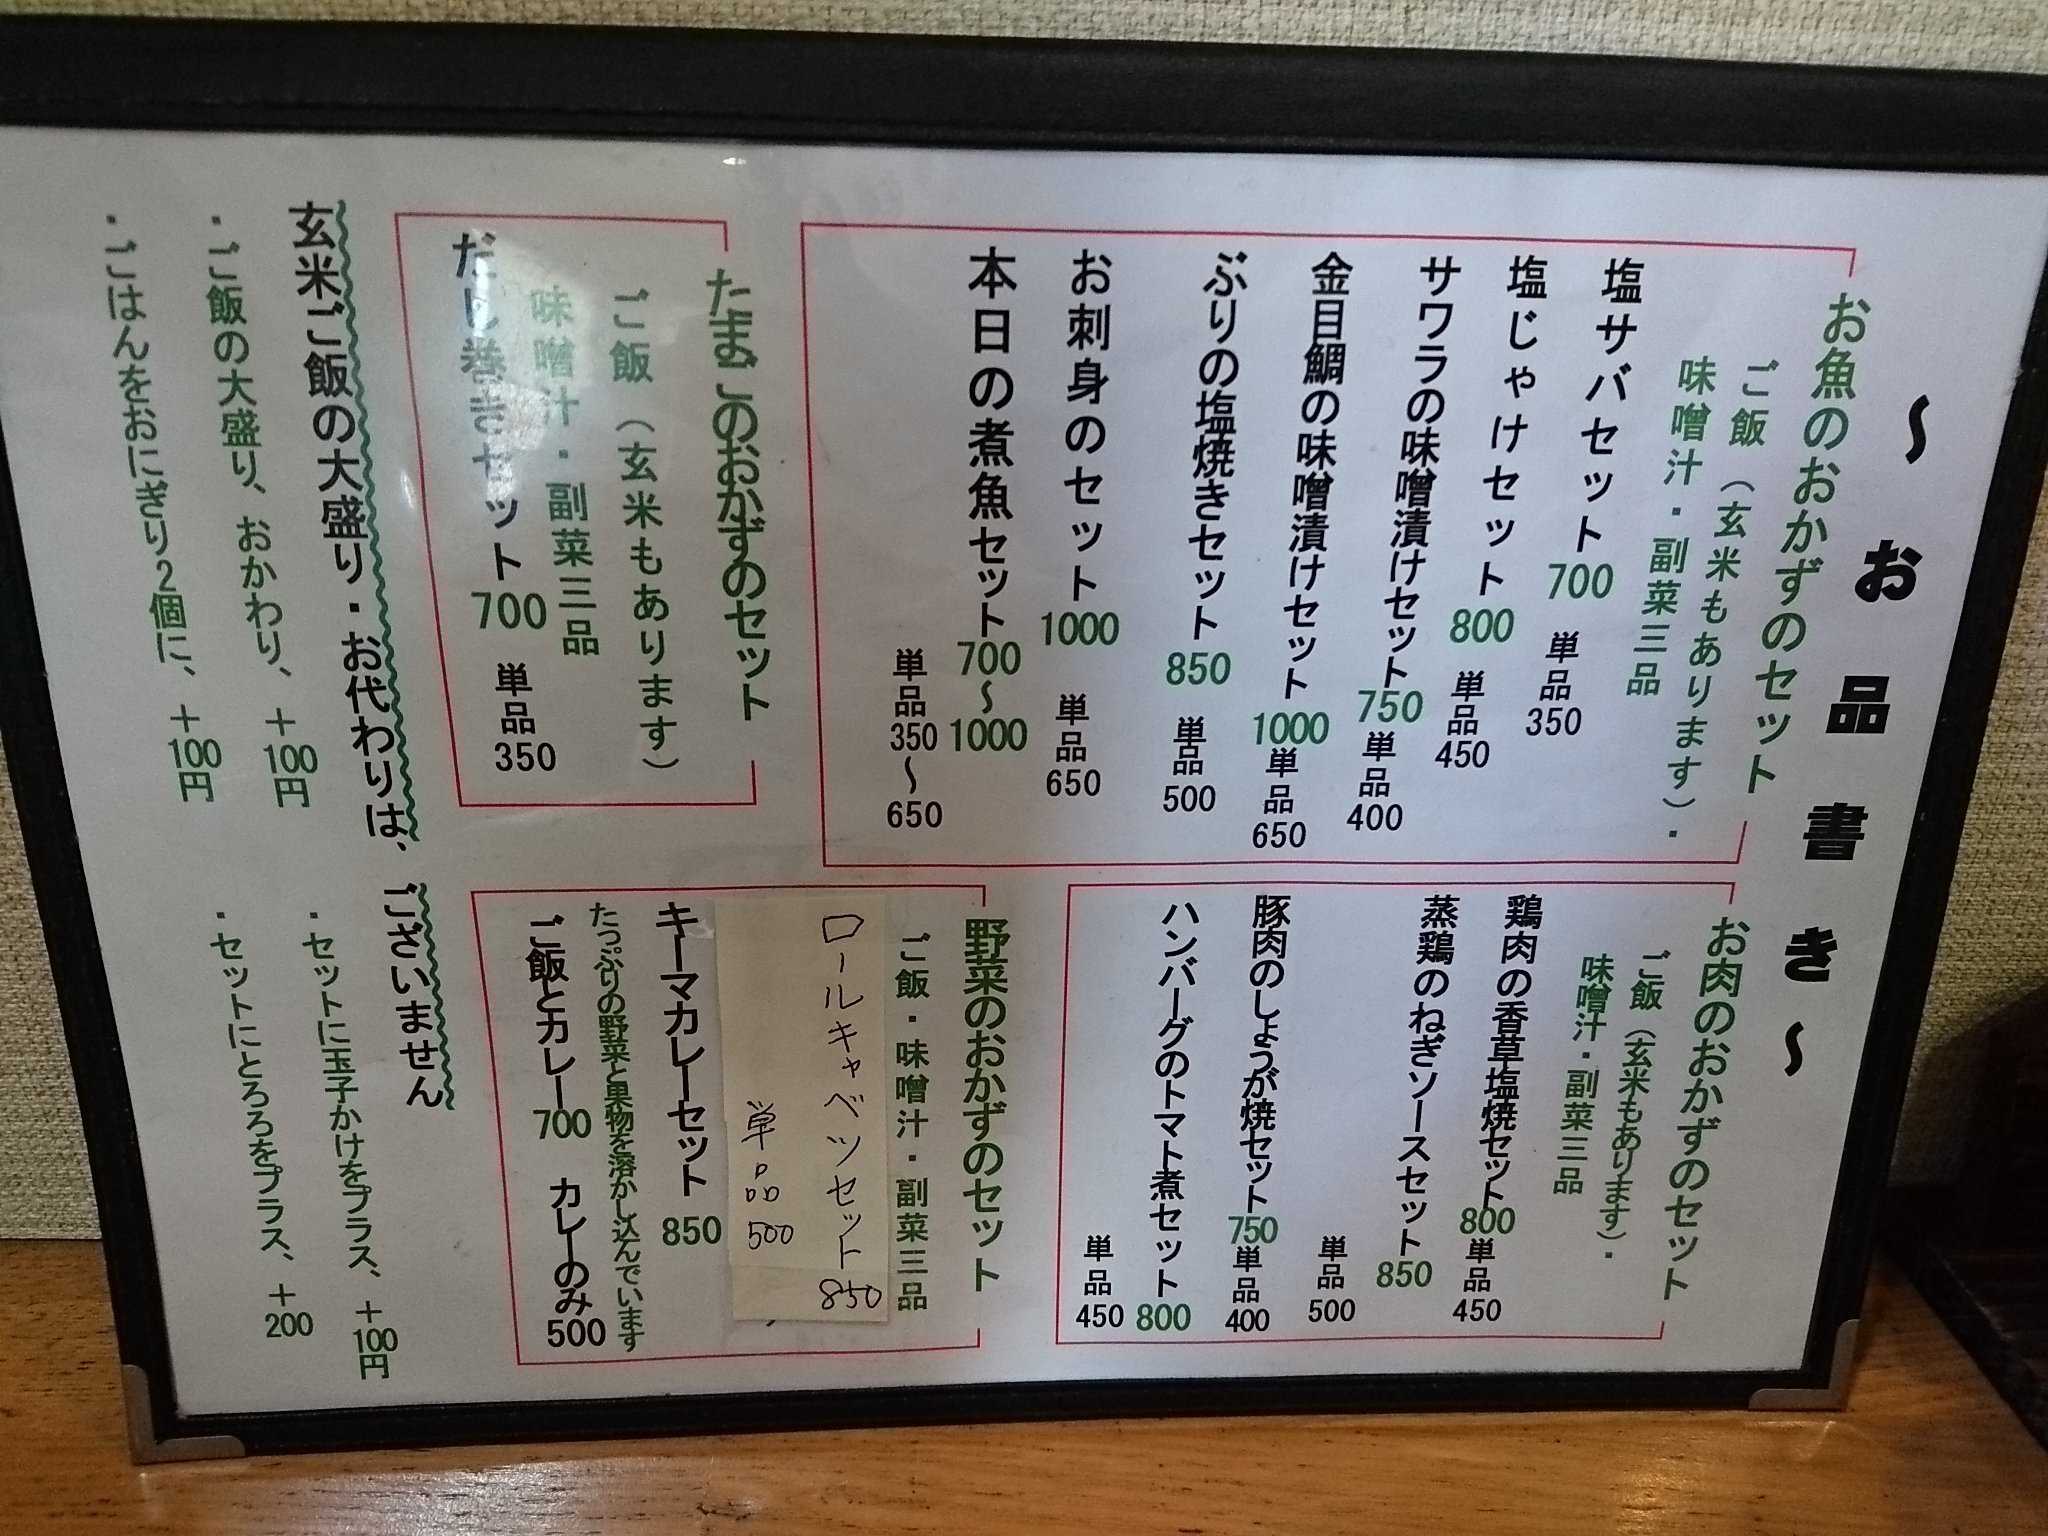 ～お品書き～
お魚のおかずのセット
ご飯（玄米もあります）・
味噌汁・副菜三品
塩サバセット700 単品350
塩じゃけセット800 単品450
サワラの味噌漬けセット750 単品400
金目鯛の味噌漬けセット1000 単品650
ぶりの塩焼きセット850 単品500
お刺身のセット1000 単品650
本日の煮魚セット700～1000
単品350～650
お肉のおかずのセット
ご飯（玄米もあります）・
味噌汁・副菜三品
鶏肉の香草塩焼セット800 単品450
蒸鶏のねぎソースセット850
単品500
豚肉のしょうが焼セット750 単品400
ハンバーグのトマト煮セット800
単品450
たまごのおかずのセット
ご飯（玄米もあります）
味噌汁・副菜三品
だし巻きセット700 単品350
野菜のおかずのセット
ご飯・味噌汁・副菜三品
ロールキャベツセット850
単品500
キーマカレーセット850
たっぷりの野菜と果物を溶かし込んでいます
ご飯とカレー700 カレーのみ500
玄米ご飯の大盛り・お代わりは、ございません
・ご飯の大盛り、おかわり、＋100円
・ごはんをおにぎり2個に、＋100円
・セットに玉子かけをプラス、＋100円
・セットにとろろをプラス、＋200